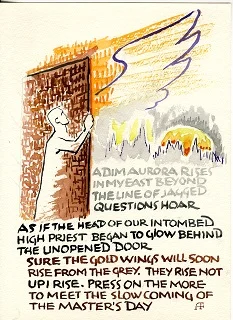 A DIM AURORA RISES
IN MY EAST BEYOND
THE LINE OF JAGGED
QUESTIONS HOAR
AS IF THE HEAD OF OUR INTOMBED
HIGH PRIEST BEGAN TO GLOW BEHIND
THE UNOPENED DOOR
SURE THE GOLD WINGS WILL SOON
RISE FROM THE GREY. THEY RISE NOT
UP I RISE. PRESS ON THE MORE
TO MEET THE SLOW COMING OF
THE MASTER'S DAY